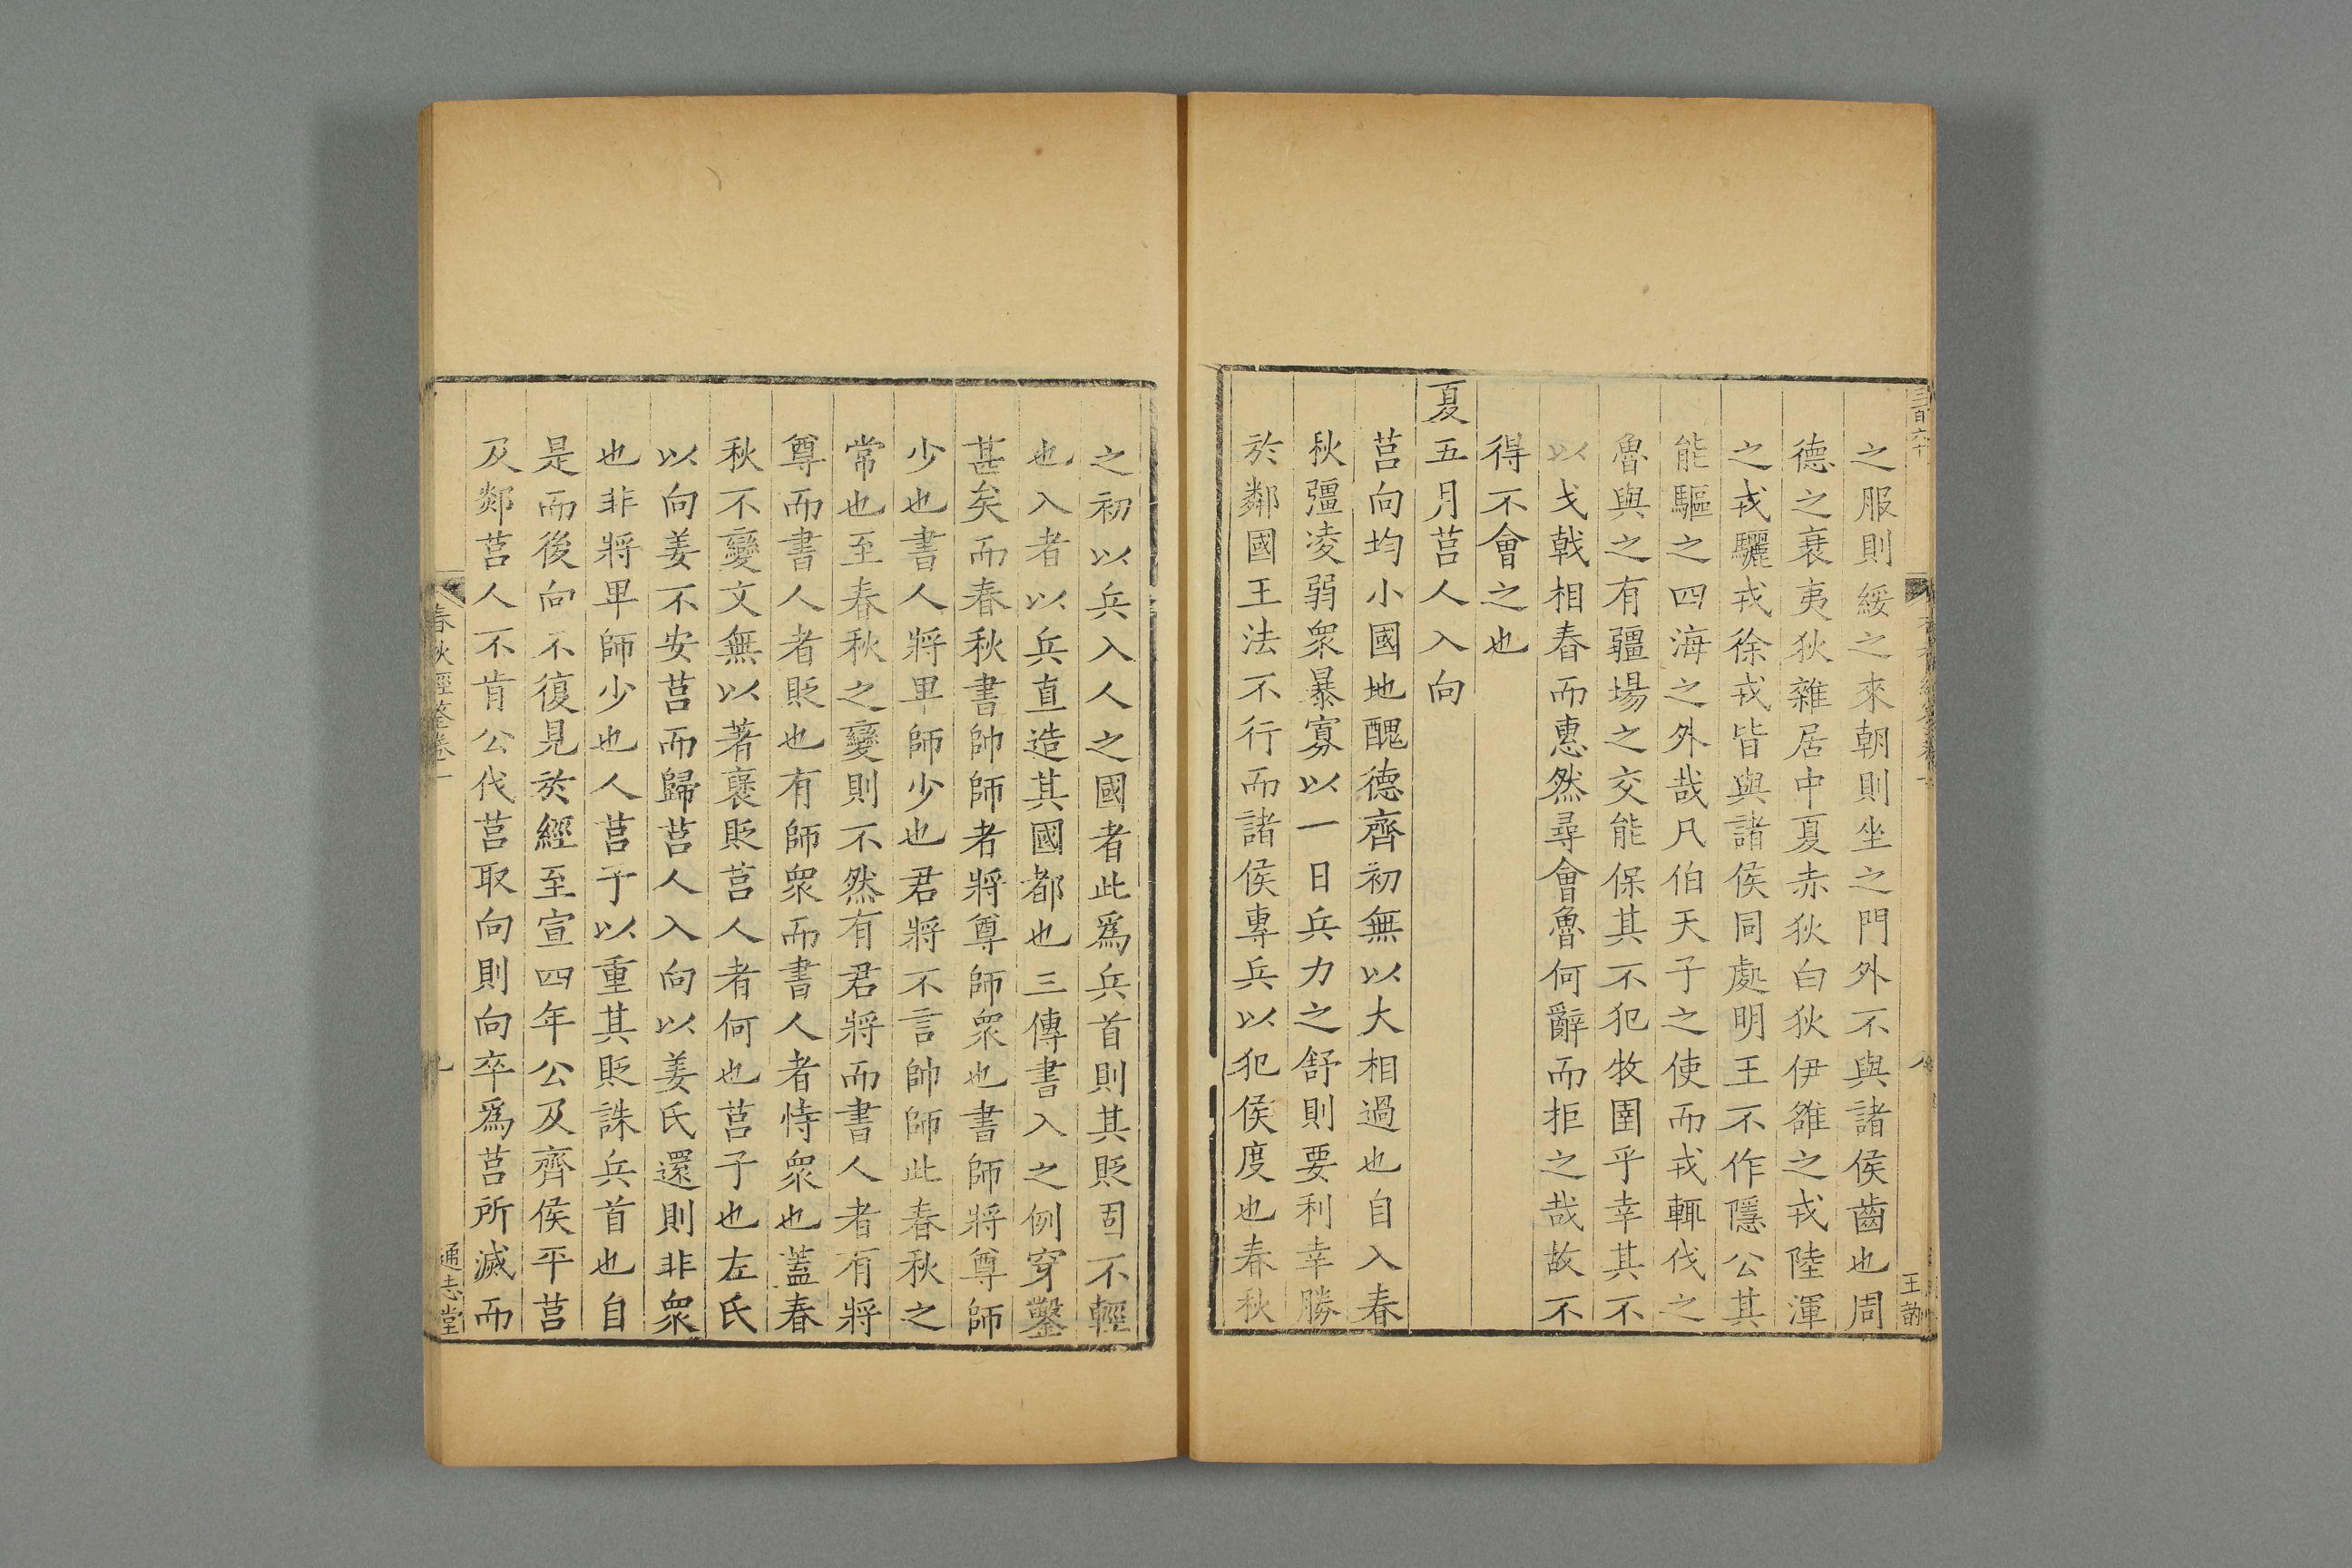 之服則綏之來朝則坐之門外不與諸侯齒也周
德之衰夷狄雜居中夏赤狄白狄伊雒之戎陸渾
之戎驪戎徐戎皆與諸侯同處明王不作隱公其
能驅之四海之外哉凡伯天子之使而戎輒伐之
魯與之有疆場之交能保其不犯牧圉乎幸其不
以戈戟相舂而惠然尋會魯何辭而拒之哉故不
得不會之也
夏五月莒人入向
莒向均小國地醜德齊初無以大相過也自入春
秋彊凌弱衆暴寡以一日兵力之舒則要利幸勝
於鄰國王法不行而諸侯專兵以犯侯度也春秋
之初以兵入人之國者此爲兵首則其貶固不輕
也入者以兵直造其國都也三傳書入之例穿鑿
甚矣而春秋書帥師者將尊師衆也書師將尊師
少也書人將卑師少也君將不言帥師此春秋之
常也至春秋之變則不然有君將而書人者有將
尊而書人者貶也有師衆而書人者恃衆也蓋春
秋不變文無以著襃貶莒人者何也莒子也左氏
以向姜不安莒而歸莒人入向以姜氏還則非衆
也非將卑師少也人莒子以重其貶誅兵首也自
是而後向不復見於經至宣四年公及齊侯平莒
及郯莒人不肯公伐莒取向則向卒爲莒所滅而
春秋經筌卷一
九
通志堂